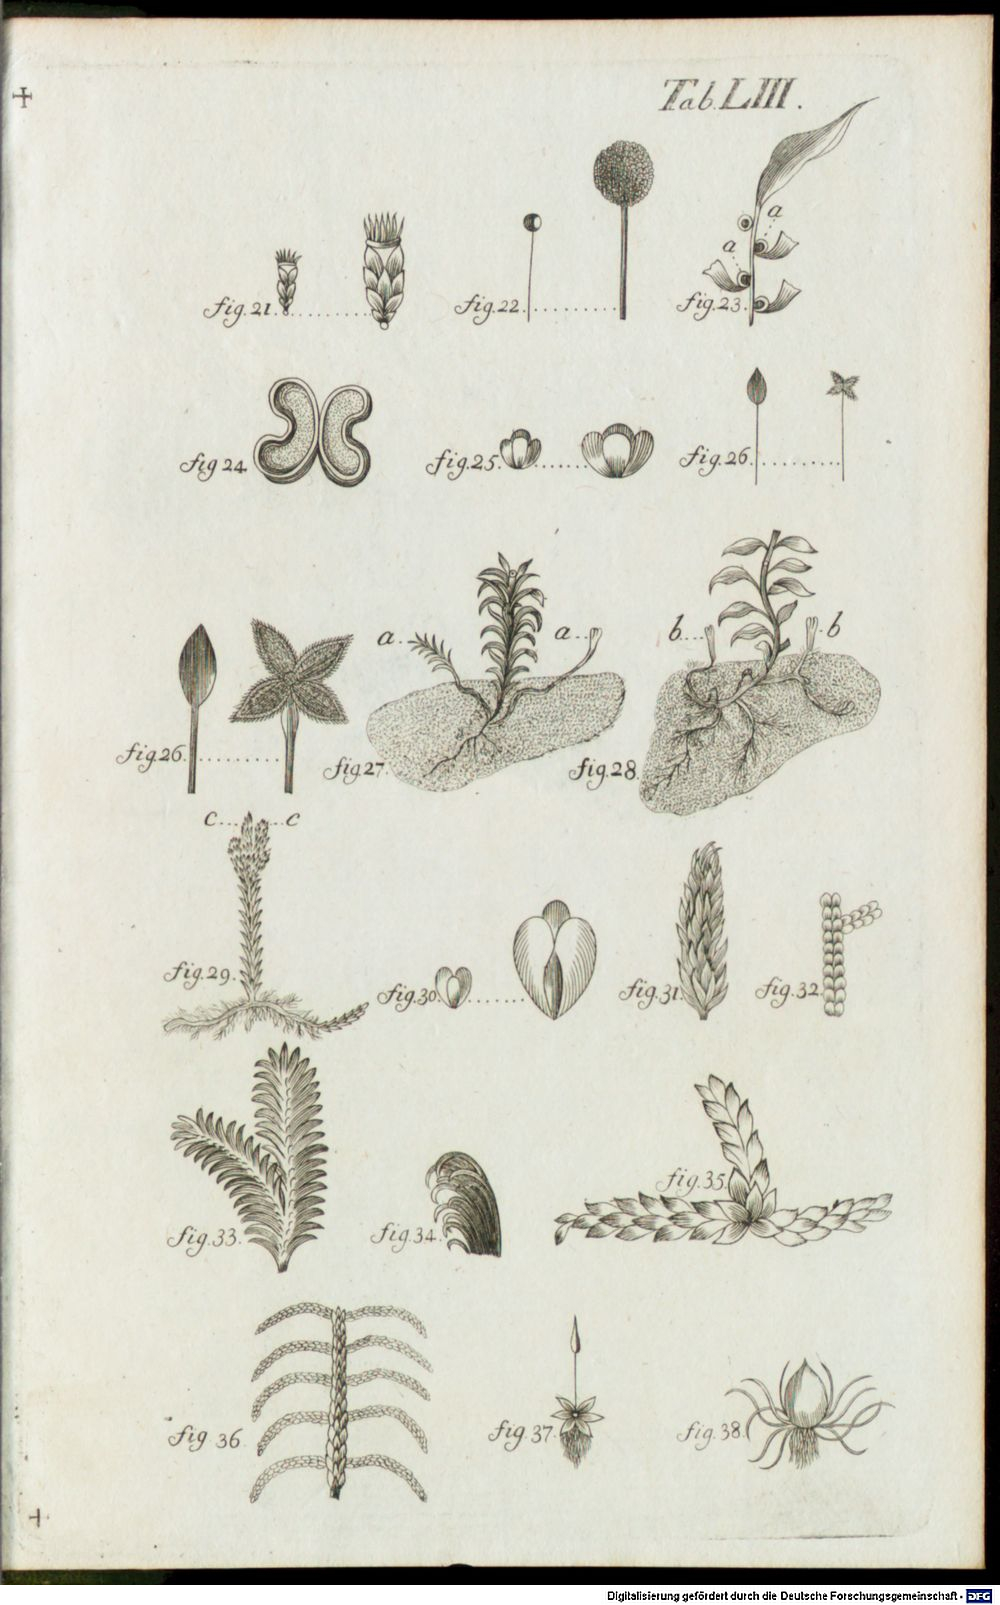 Tab. LIII.
a
a
fig. 21.
fig. 22.
fig. 23.
fig 24
fig. 25.
fig. 26.
a
a
b
b
fig. 26.
fig. 27.
fig. 28.
c
c
fig. 29.
fig. 30.
fig. 31.
fig. 32.
fig. 33.
fig. 34.
fig. 35.
fig 36
fig. 37.
fig. 38.
Digitalisierung gefördert durch die Deutsche Forschungsgemeinschaft - DFG